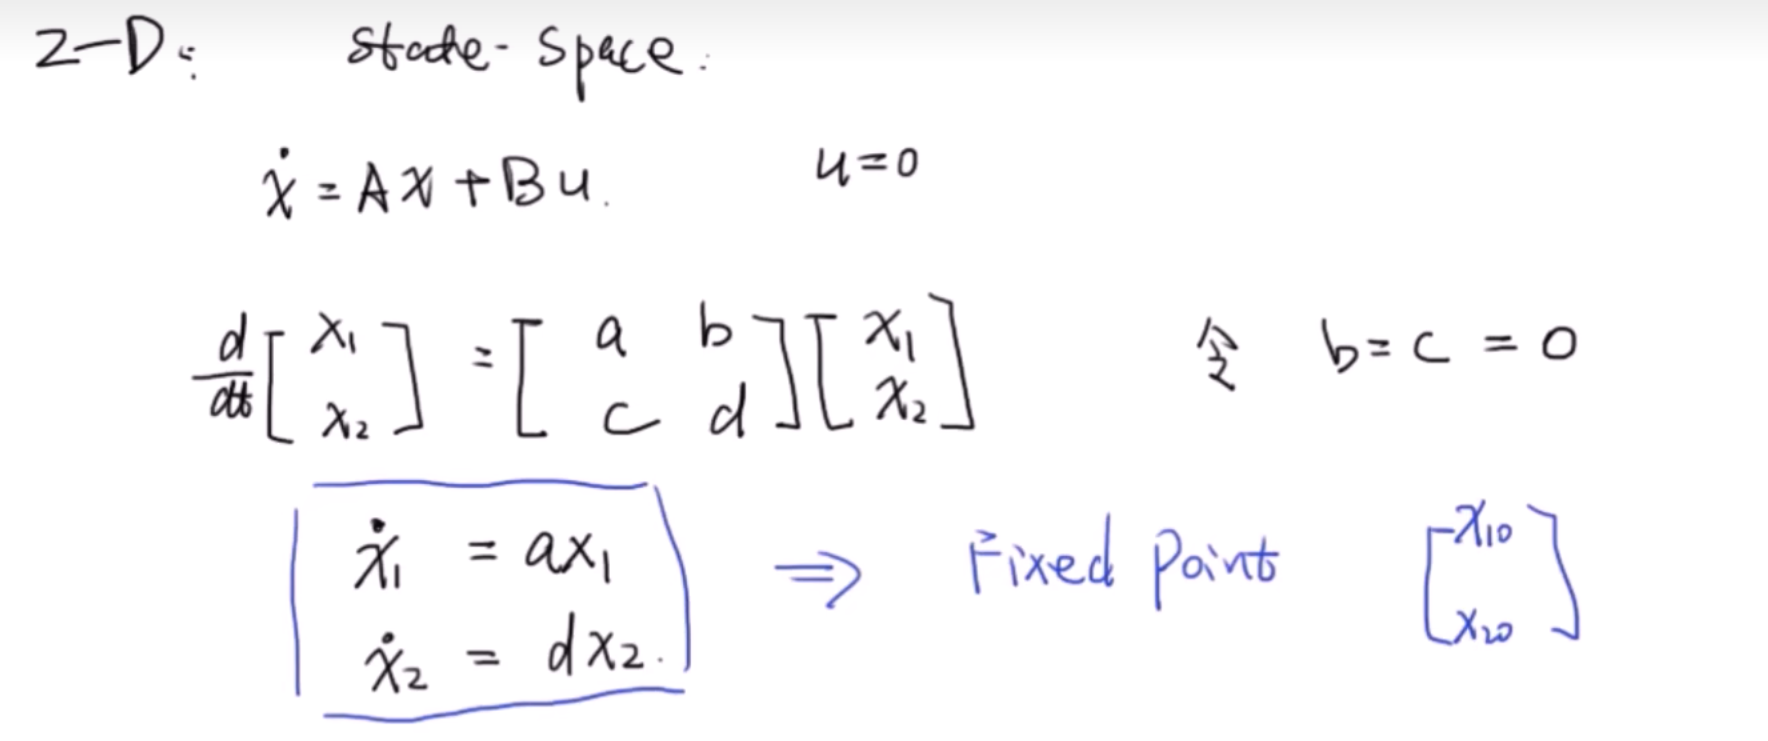 2-D: state-space.
ẋ = Ax + Bu. u=0
d/dt [x₁ x₂] = [a b c d][x₁ x₂] 令 b = c = 0
ẋ₁ = ax₁
⇒ Fixed Point [x₁₀ x₂₀]
ẋ₂ = dx₂.